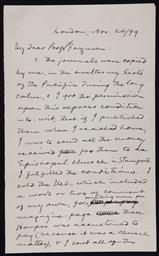 London, Nov. 20/99
My dear Prof. Ferguson:
1. The journals were copied
by me, in the sweltering seats
of the Pacific during the long
calm, & I got the permission
upon this express condition
— to wit, that if I published
them when I reached home,
I was to send all the money
received for them to the
Episcopal church in Stamford.
I fulfilled the conditions. I
sold the MS. which included
a word or two of comment
of my own, for
magazine-page than
Harpers was accustomed to
pay (because it was a church
matter), & I sent all of the